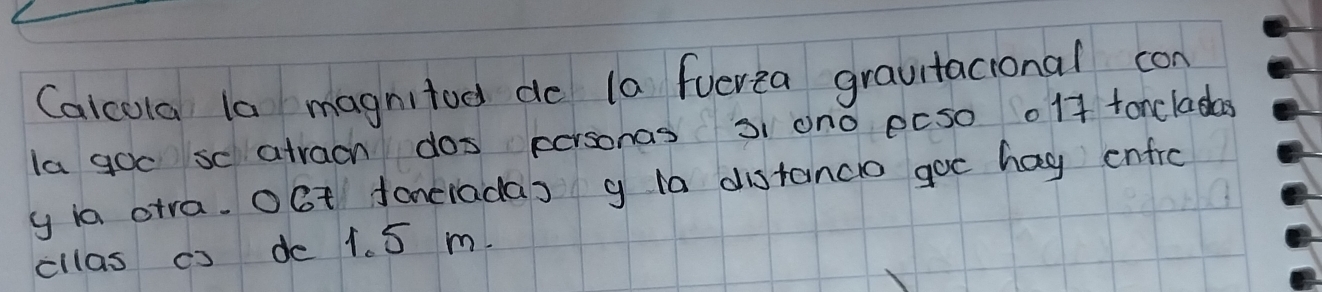 Calcula la magnitud de la fuerza gravitacional con
la que se atraen dos personas si uno peso 017 toneladas
y la otra. 067 toneladas y la distancia que hay entre
ellas es de 1.5 m.